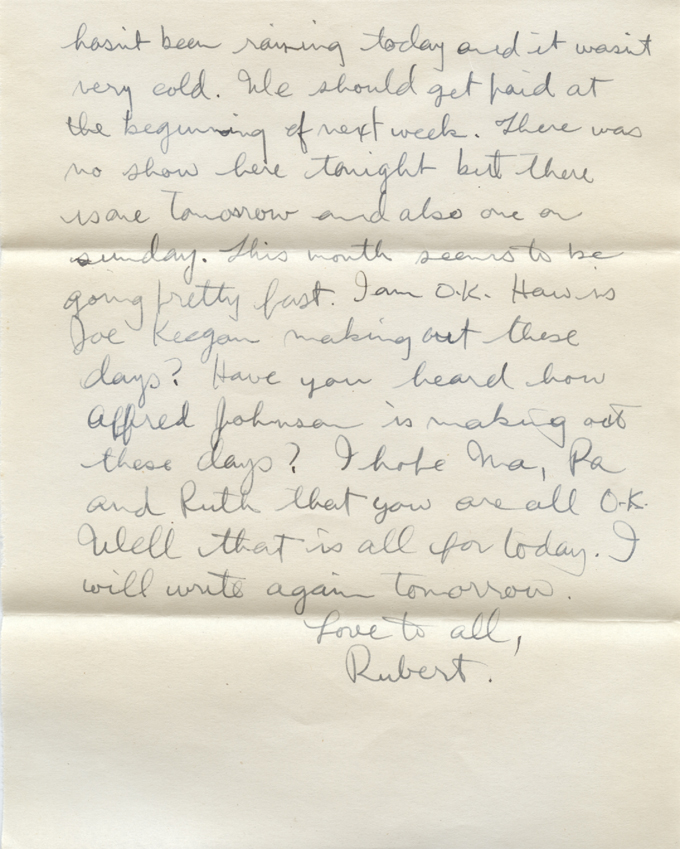 hasn't been raining today and it wasn't
very cold. We should get paid at
the beginning of next week. There was
no show here tonight but there
is one tomorrow and also one on
sunday. This month seems to be
going pretty fast. I am O.K. How is
Joe Keegan making out these
days? Have you heard how
Alfred Johnson is making out
these days? I hope Ma, Pa
and Ruth that you are all O.K.
Well that is all for today. I
will write again tomorrow.
Love to all,
Rubert.